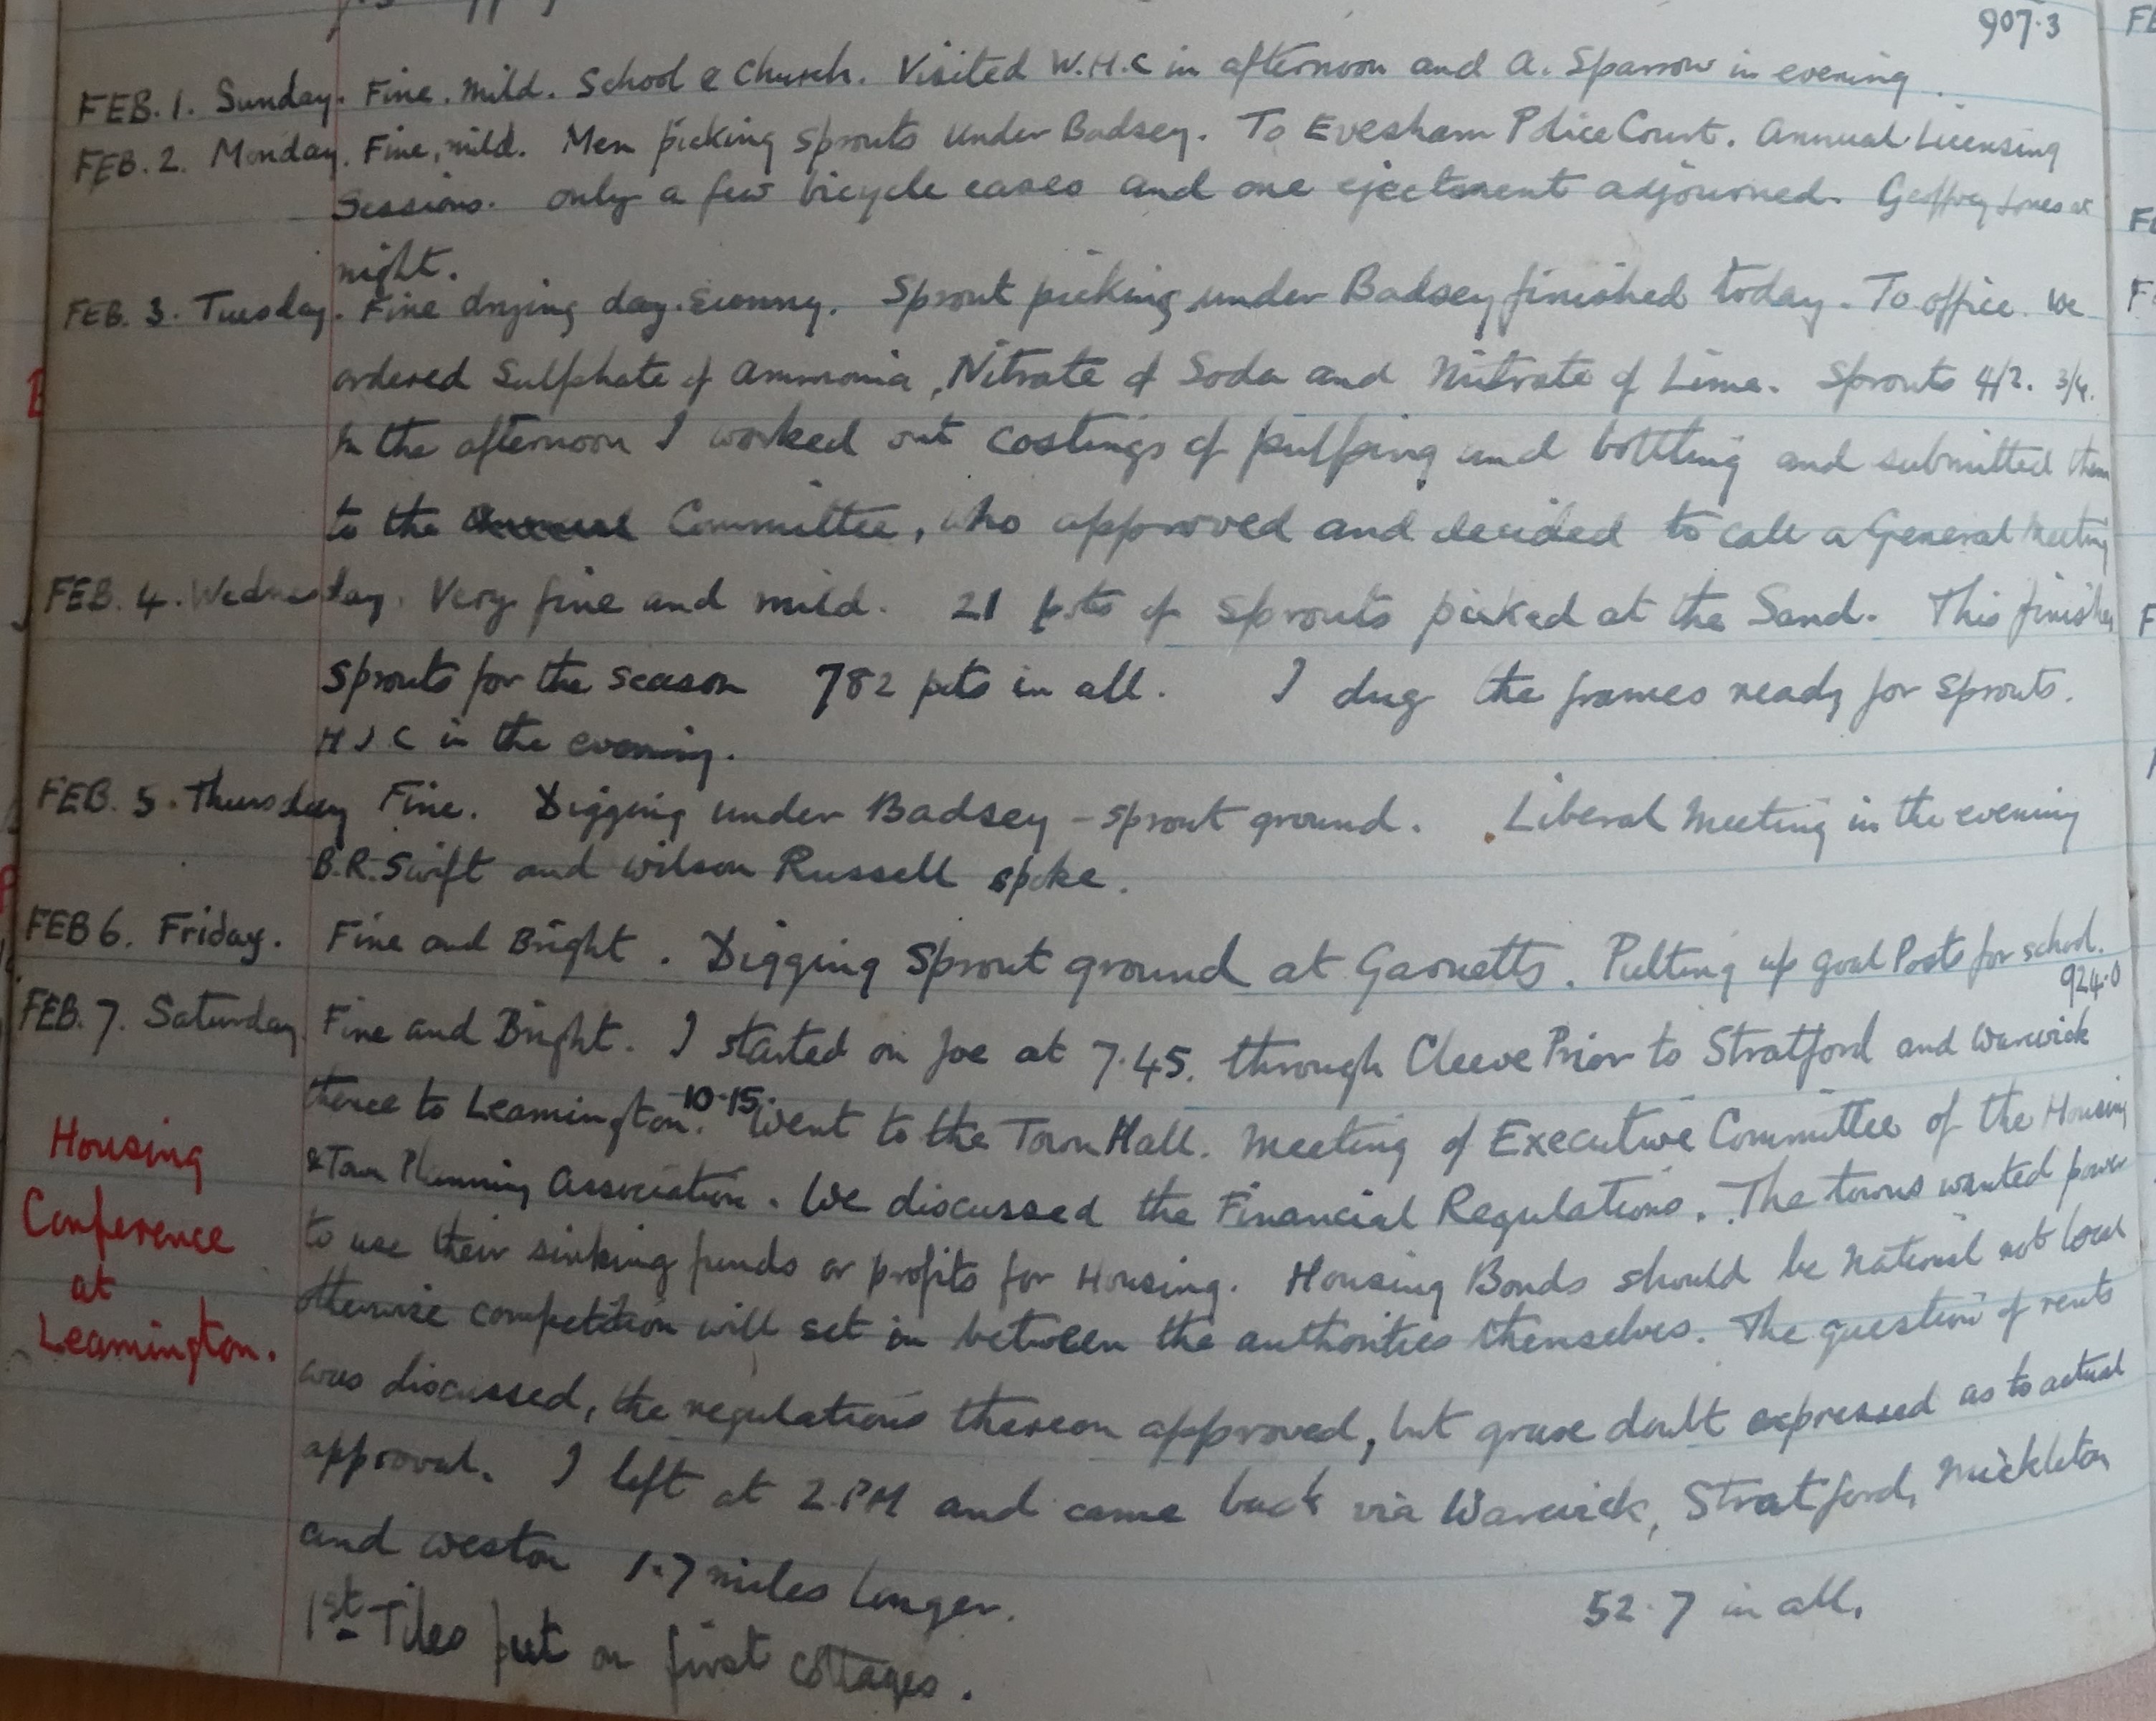 907.3
FEB. 1. Sunday. Fine. mild. School & Church. Visited W.H.C in afternoon and A. Sparrow in evening.
FEB. 2. Monday. Fine, mild. Men picking sprouts under Badsey. To Evesham Police Court. Annual Licensing
Sessions. only a few bicycle cases and one ejectment adjourned. Geoffrey Jones at
night.
FEB. 3. Tuesday. Fine drying day. Sunny. Sprout picking under Badsey finished today. To office. We
ordered Sulphate of Ammonia, Nitrate of Soda and Nitrate of Lime. Sprouts 4/2. 3/4.
In the afternoon I worked out costings of pulping and bottling and submitted them
to the Committee, who approved and decided to call a General Meeting
FEB. 4. Wednesday. Very fine and mild. 21 pots of sprouts picked at the Sand. This finishes
sprouts for the season 782 pots in all. I dug the frames ready for sprouts.
H J C in the evening.
FEB. 5. Thursday Fine. Digging under Badsey - sprout ground. Liberal Meeting in the evening
B.R. Swift and Wilson Russell spoke.
FEB 6. Friday. Fine and Bright. Digging sprout ground at Garnetts. Putting up goal Posts for school.
924.0
FEB. 7. Saturday Fine and Bright. I started on Joe at 7.45. through Cleeve Prior to Stratford and Warwick
thence to Leamington. 10.15. Went to the Town Hall. Meeting of Executive Committee of the Housing
& Town Planning Association. We discussed the Financial Regulations. The towns wanted power
to use their sinking funds or profits for Housing. Housing Bonds should be National not local
otherwise competition will set in between the authorities themselves. The question of rents
was discussed, the regulations thereon approved, but grave doubt expressed as to actual
approval. I left at 2.PM and came back via Warwick, Stratford, Mickleton
and Weston 1.7 miles longer.
52.7 in all.
1st Tiles put on first cottages.
Housing
Conference
at
Leamington.